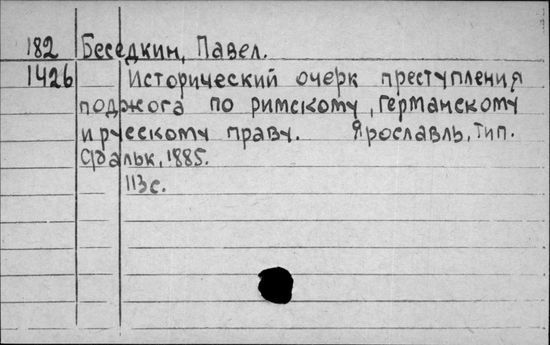 182 Беседкин, Павел.
1426 Исторический очерк преступления
поджога по римскому, германскому
и русскому праву. Ярославль, Тип.
Фальк, 1885.
113 с.